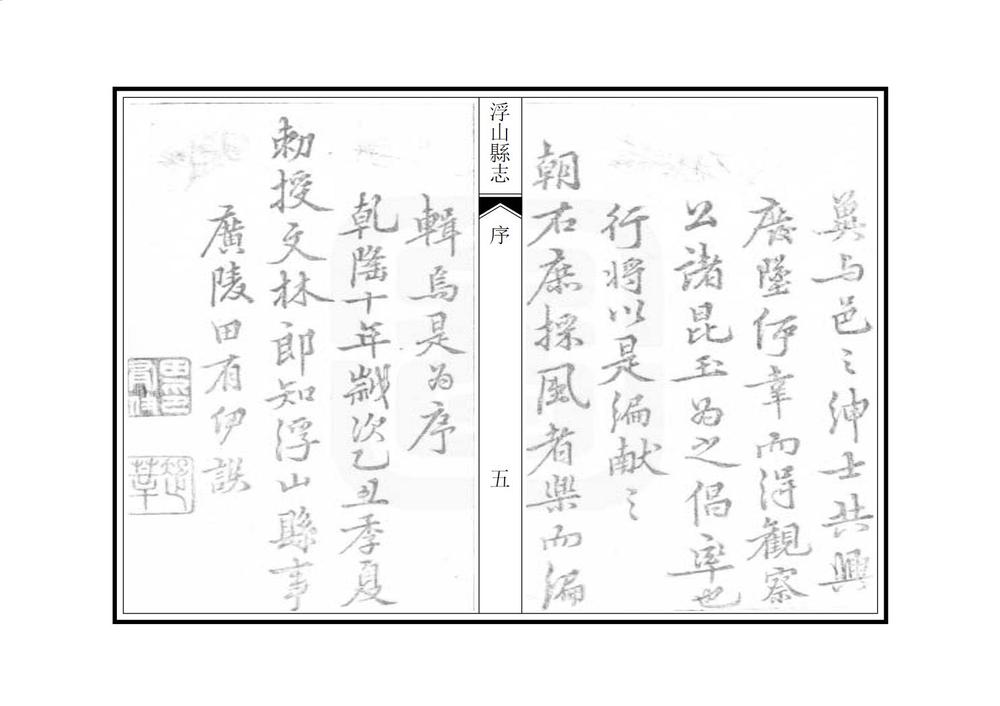 冀与邑之紳士共興
廢墜伊幸而得觀察
公諸昆玉為之倡率也
行將以是編献之
朝右庶採風者樂而編
浮山縣志
序
五
輯焉是為序
乾隆十年歲次乙丑季夏
勅授文林郎知浮山縣事
廣陵田有伊譔